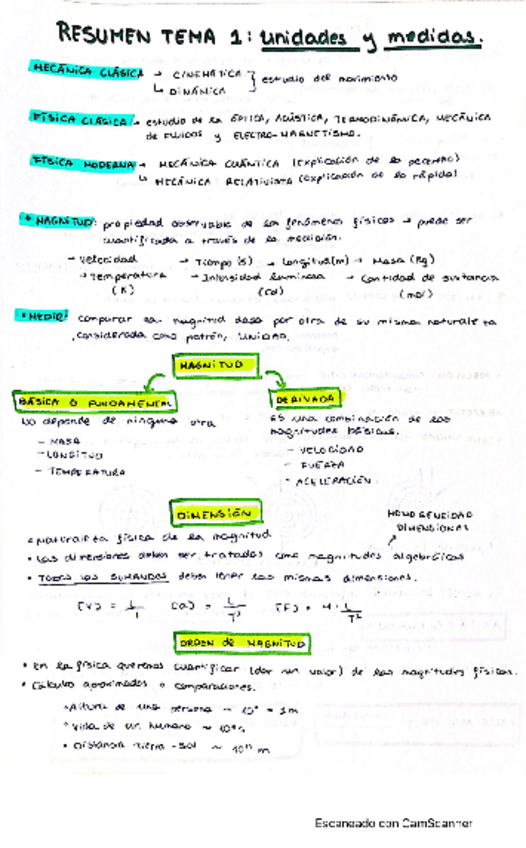 RESUMEN TEMA 1: unidades y medidas.
MECÁNICA CLÁSICA → CINEMÁTICA } estudio del movimiento
↳ DINÁMICA
FÍSICA CLÁSICA → estudio de la ÓPTICA, ACÚSTICA, TERMODINÁMICA, MECÁNICA
de FLUIDOS y ELECTRO-MAGNETISMO.
FÍSICA MODERNA → MECÁNICA CUÁNTICA (explicación de lo pequeño)
↳ MECÁNICA RELATIVISTA (explicación de lo rápido)
* MAGNITUD: propiedad observable de los fenómenos físicos → puede ser
cuantificada a través de la medición.
- Velocidad → Tiempo (s) → Longitud (m) → Masa (Kg)
→ Temperatura → Intensidad luminosa → Cantidad de sustancia
(K) (Cd) (mol)
• MEDIR: comparar una magnitud dada por otra de su misma naturaleza
considerada como patrón, UNIDAD.
MAGNITUD
BÁSICA O FUNDAMENTAL DERIVADA
No depende de ninguna otra Es una combinación de las
magnitudes básicas.
- MASA - VELOCIDAD
- LONGITUD - FUERZA
- TEMPERATURA - ACELERACIÓN
DIMENSIÓN HOMOGENEIDAD
DIMENSIONAL
• Naturaleza física de la magnitud
• Las dimensiones deben ser tratadas como magnitudes algebraicas
• TODOS LOS SUMANDOS deben tener las mismas dimensiones.
[v] = L/T [a] = L/T² [F] = M · L/T²
ORDEN de MAGNITUD
• En la física queremos cuantificar (dar un valor) de las magnitudes físicas.
• Cálculo aproximados o comparaciones.
• Altura de una persona ~ 10⁰ = 1m
• Vida de un humano ~
• Distancia Tierra - Sol ~ 10¹¹ m
Escaneado con CamScanner